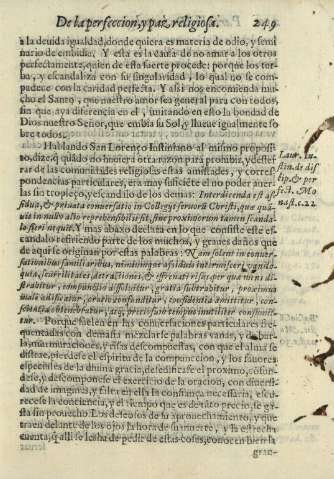 De la perfeccion, y paz religiosa. 249
a la deuida igualdad, donde quiera es materia de odio, y semi
nario de embidia. Y esta es la causa de no amar a los otros
perfectamente, quien de esta suerte procede: porque los tur-
ba, y escandaliza con su singularidad, lo qual no se com-
padece con la caridad perfecta. Y assi nos encomienda mu-
cho el Santo, que nuestro amor sea general para con todos,
sin que aya diferencia en el, imitando en esto la bondad de
Dios nuestro Señor, que embia su Sol, y llueue igualmente so
bre todos.
Hablando San Lorenço Iustiniano al mismo proposi-
to, dize, q̃ quãdo no huuiera otra razon para prohibir, y dester
rar de las comunidades religiosas estas amistades, y corres-
pondencias particulares, era muy suficiẽte el no poder auer-
las sin tropieço, y escandalo de los demas:
fidua, & priuata conuersatio in Collegijs seruorũ Christi, quæ quã-
uis in nullo alio reprehensibilis sit, sine proximorum tamen scanda-
lo fieri nequit. Y mas abaxo declara en lo que consiste este es-
candalo refiriendo parte de los muchos, y graues daños que
de aqui se originan por estas palabras:
male ædificatur, oratio confunditur, confidentia amittitur, con-
Porque suelen en las conuersaciones particulares fre-
quentadas con demasia mezclarse palabras vanas, y de bur-
la, murmuraciones, risas descompuestas, con que el alma se
distrae, pierdese el espiritu de la compuncion, y los fauores
especiales de la diuina gracia, desedificase el proximo, cõfun-
dese, y descomponese el exercicio de la oracion, con diuersi-
dad de imagines, y falta en ella la confiança necessaria, escu-
recese la conciencia, y el tiempo que es de tãto precio, se ga
sta sin prouecho. Los desseosos de su aprouechamiento, y que
traen delante de los ojos la hora de su muerte, y la estrecha
cuenta, q̃ alli se les ha de pedir de estas cosas, conocen bien la
gran-
Laur. Iu-
stin. de dis
cip. & per
fect. Mo
nast. c. 22